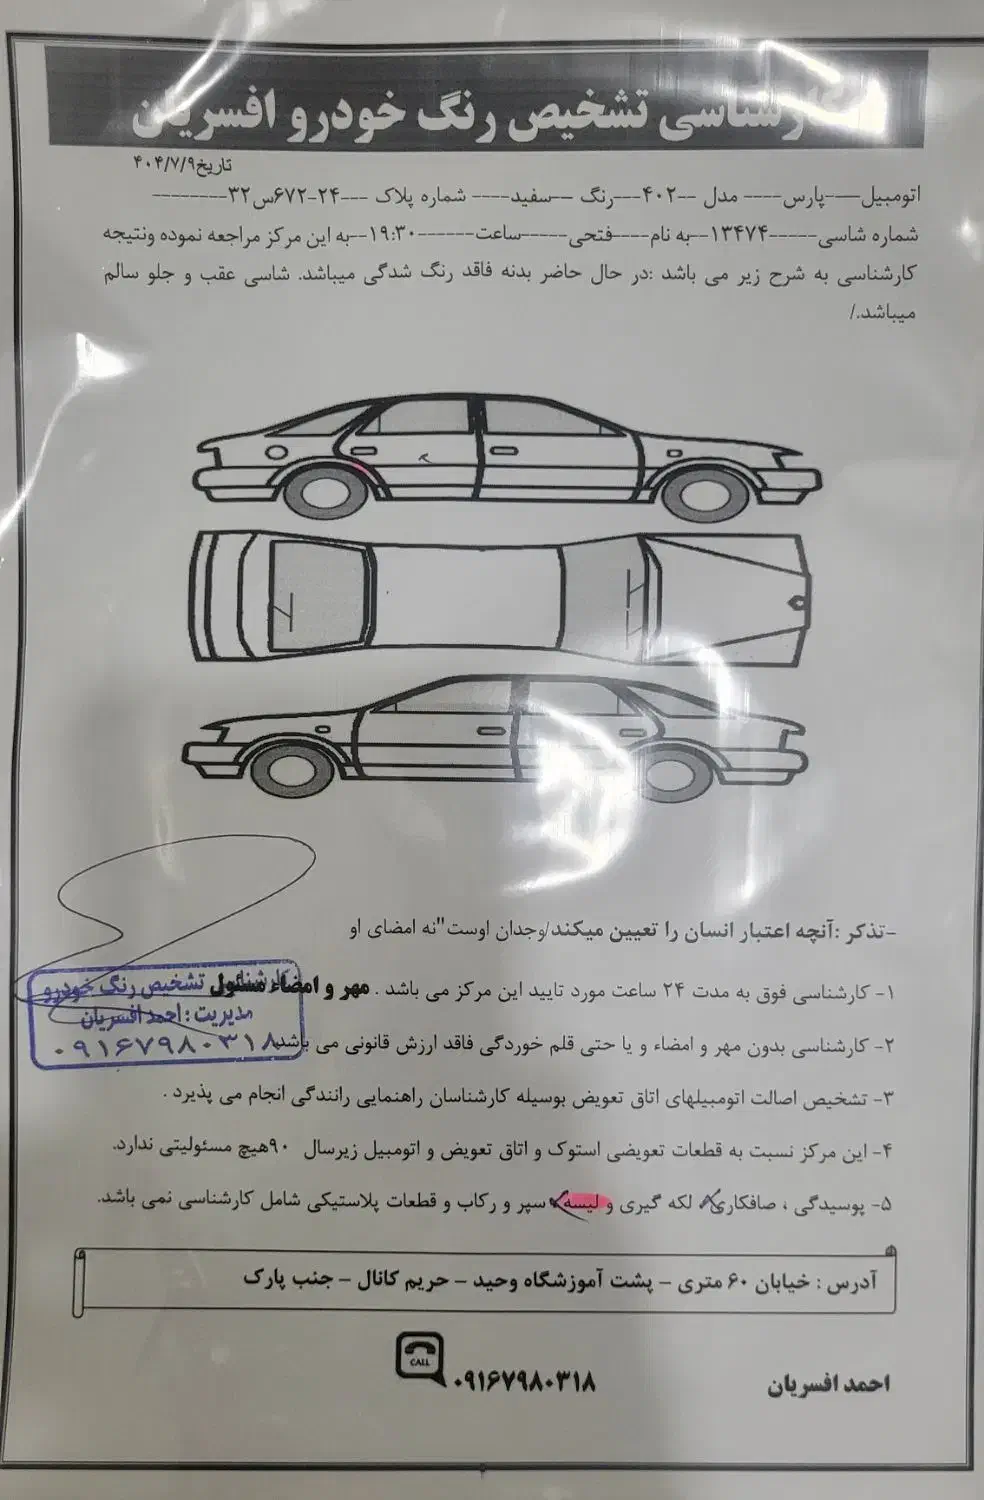 کارشناسی تشخیص رنگ خودرو افسریان
تاریخ۴۰۴/۷/۹
اتومبیل----پارس---- مدل --۴۰۲---رنگ --سفید---- شماره پلاک ---۲۴-۶۷۲س۳۲--------
شماره شاسی-----۱۳۴۷۴--به نام----فتحی-----ساعت------۱۹:۳۰--به این مرکز مراجعه نموده ونتیجه
کارشناسی به شرح زیر می باشد :در حال حاضر بدنه فاقد رنگ شدگی میباشد. شاسی عقب و جلو سالم
میباشد./
-تذکر :آنچه اعتبار انسان را تعیین میکند/وجدان اوست"نه امضای او
۱- کارشناسی فوق به مدت ۲۴ ساعت مورد تایید این مرکز می باشد . مهر و امضاء مسئول
کارشناسی تشخیص رنگ خودرو
مدیریت : احمد افسریان
۰۹۱۶۷۹۸۰۳۱۸
۲- کارشناسی بدون مهر و امضاء و یا حتی قلم خوردگی فاقد ارزش قانونی می باشد
۳- تشخیص اصالت اتومبیلهای اتاق تعویض بوسیله کارشناسان راهنمایی رانندگی انجام می پذیرد .
۴- این مرکز نسبت به قطعات تعویضی استوک و اتاق تعویض و اتومبیل زیرسال ۹۰هیچ مسئولیتی ندارد.
۵- پوسیدگی ، صافکاری، لکه گیری و لیسه سپر و رکاب و قطعات پلاستیکی شامل کارشناسی نمی باشد.
آدرس : خیابان ۶۰ متری – پشت آموزشگاه وحید – حریم کانال – جنب پارک
CALL
۰۹۱۶۷۹۸۰۳۱۸
احمد افسریان